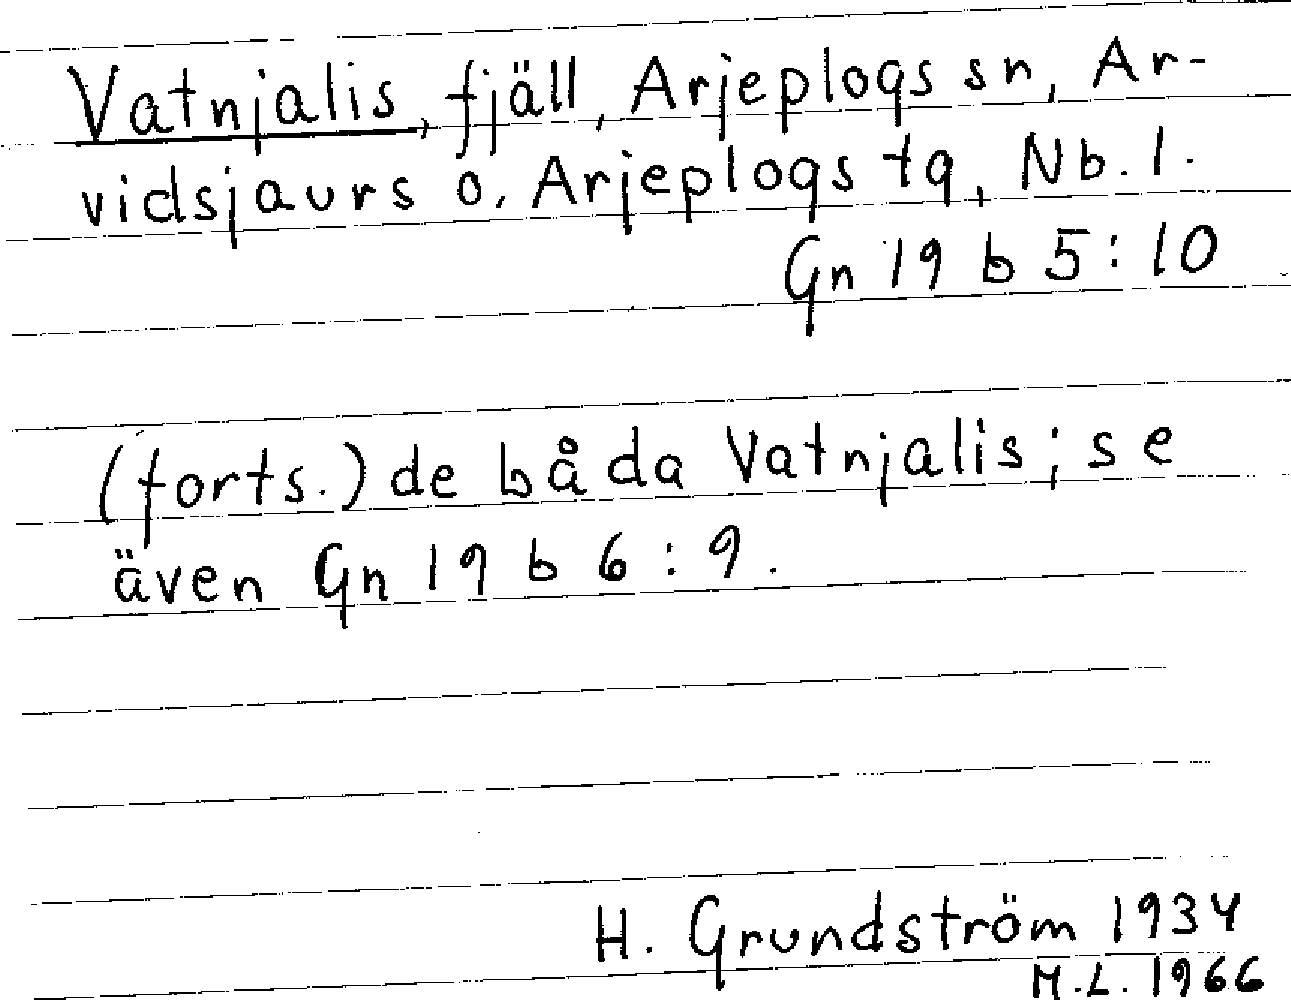 Vatnjalis, fjäll, Arjeplogs sn, Ar-
vidsjaurs o. Arjeplogs tg, Nb. l.
Gn 19 b 5:10
(forts.) de båda Vatnjalis; se
även Gn 19 b 6:9.
H. Grundström 1934
M.L. 1966